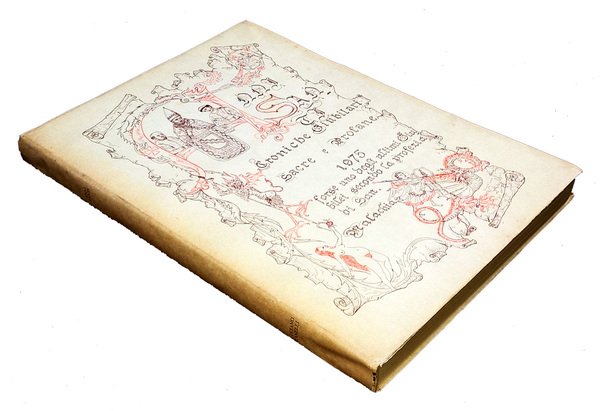 ANNI
SAN-
TI
Croniche Giubilari
Sacre e Profane
1975
forse uno degli ultimi Giu-
bilei secondo la profezia
di San
Malachia